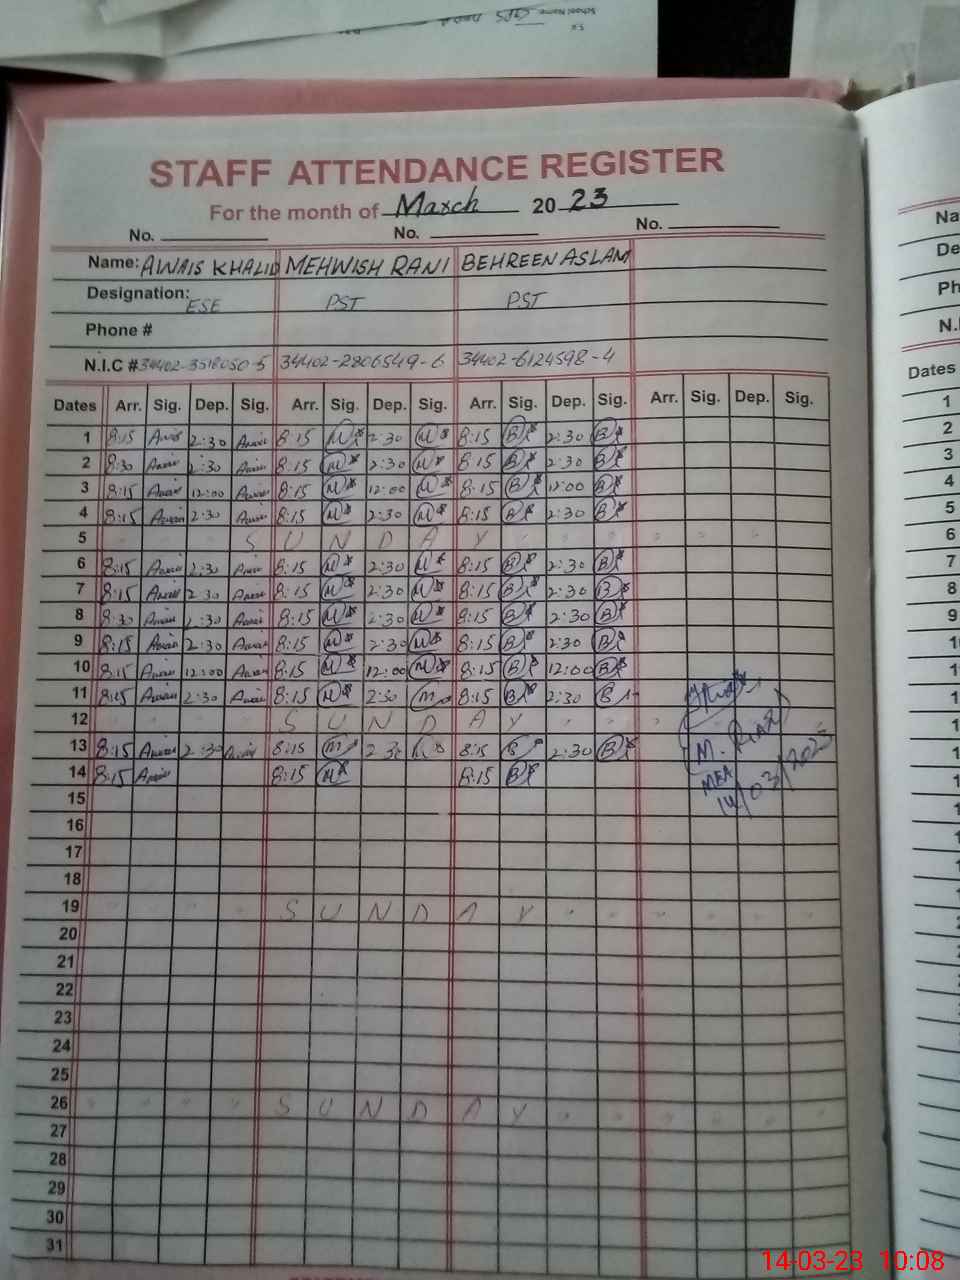 School Name: GPS
STAFF ATTENDANCE REGISTER
For the month of March 2023
No. No. No.
Name: AWAIS KHALID MEHWISH RANI BEHREEN ASLAM
Designation: ESE PST PST
Phone #
N.I.C # 34402-3518050-5 34402-2806549-6 34402-6124598-4
Dates Arr. Sig. Dep. Sig. Arr. Sig. Dep. Sig. Arr. Sig. Dep. Sig. Arr. Sig. Dep. Sig.
1 8:15 Awais 2:30 Awais 8:15 M 2:30 M 8:15 B 2:30 B
2 8:30 Awais 2:30 Awais 8:15 M 2:30 M 8:15 B 2:30 B
3 8:15 Awais 12:00 Awais 8:15 M 12:00 M 8:15 B 12:00 B
4 8:15 Awais 2:30 Awais 8:15 M 2:30 M 8:15 B 2:30 B
5 SUNDAY
6 8:15 Awais 2:30 Awais 8:15 M 2:30 M 8:15 B 2:30 B
7 8:15 Awais 2:30 Awais 8:15 M 2:30 M 8:15 B 2:30 B
8 8:30 Awais 2:30 Awais 8:15 M 2:30 M 8:15 B 2:30 B
9 8:15 Awais 2:30 Awais 8:15 M 2:30 M 8:15 B 2:30 B
10 8:15 Awais 12:00 Awais 8:15 M 12:00 M 8:15 B 12:00 B
11 8:15 Awais 2:30 Awais 8:15 M 2:30 M 8:15 B 2:30 B
12 SUNDAY
13 8:15 Awais 2:30 Awais 8:15 M 2:30 8:15 2:30 B
14 8:15 Awais 8:15 M 8:15 B
M. RIAZ
MEA
14/03/2023
15
16
17
18
19 SUNDAY
20
21
22
23
24
25
26 SUNDAY
27
28
29
30
31
14-03-23 10:08